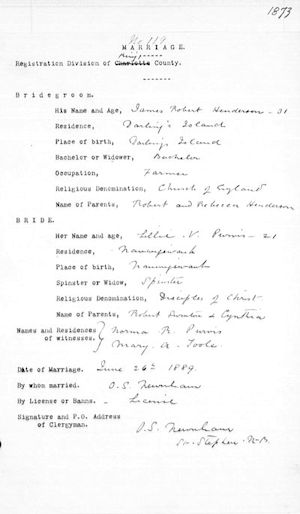 1873
No 119
MARRIAGE.
King's
Registration Division of Charlotte County.
Bridegroom.
His Name and Age, James Robert Henderson - 31
Residence, Darling's Island
Place of birth, Darlings Island
Bachelor or Widower, Bachelor
Occupation, Farmer
Religious Denomination, Church of England
Name of Parents, Robert and Rebecca Henderson
BRIDE.
Her Name and Age, Lillie V. Purvis - 21
Residence, Nauwigewauk
Place of birth, Nauwigewauk
Spinster or Widow, Spinster
Religious Denomination, Disciples of Christ
Name of Parents, Robert & Cynthia
Names and Residences
of witnesses.
Norma R. Purvis
Mary A. Toole
Date of Marriage. June 26th 1889.
By whom married. O.S. Newnham
By License or Banns. - License
Signature and P.O. Address
of Clergyman.
O.S. Newnham
St. Stephen N.B.